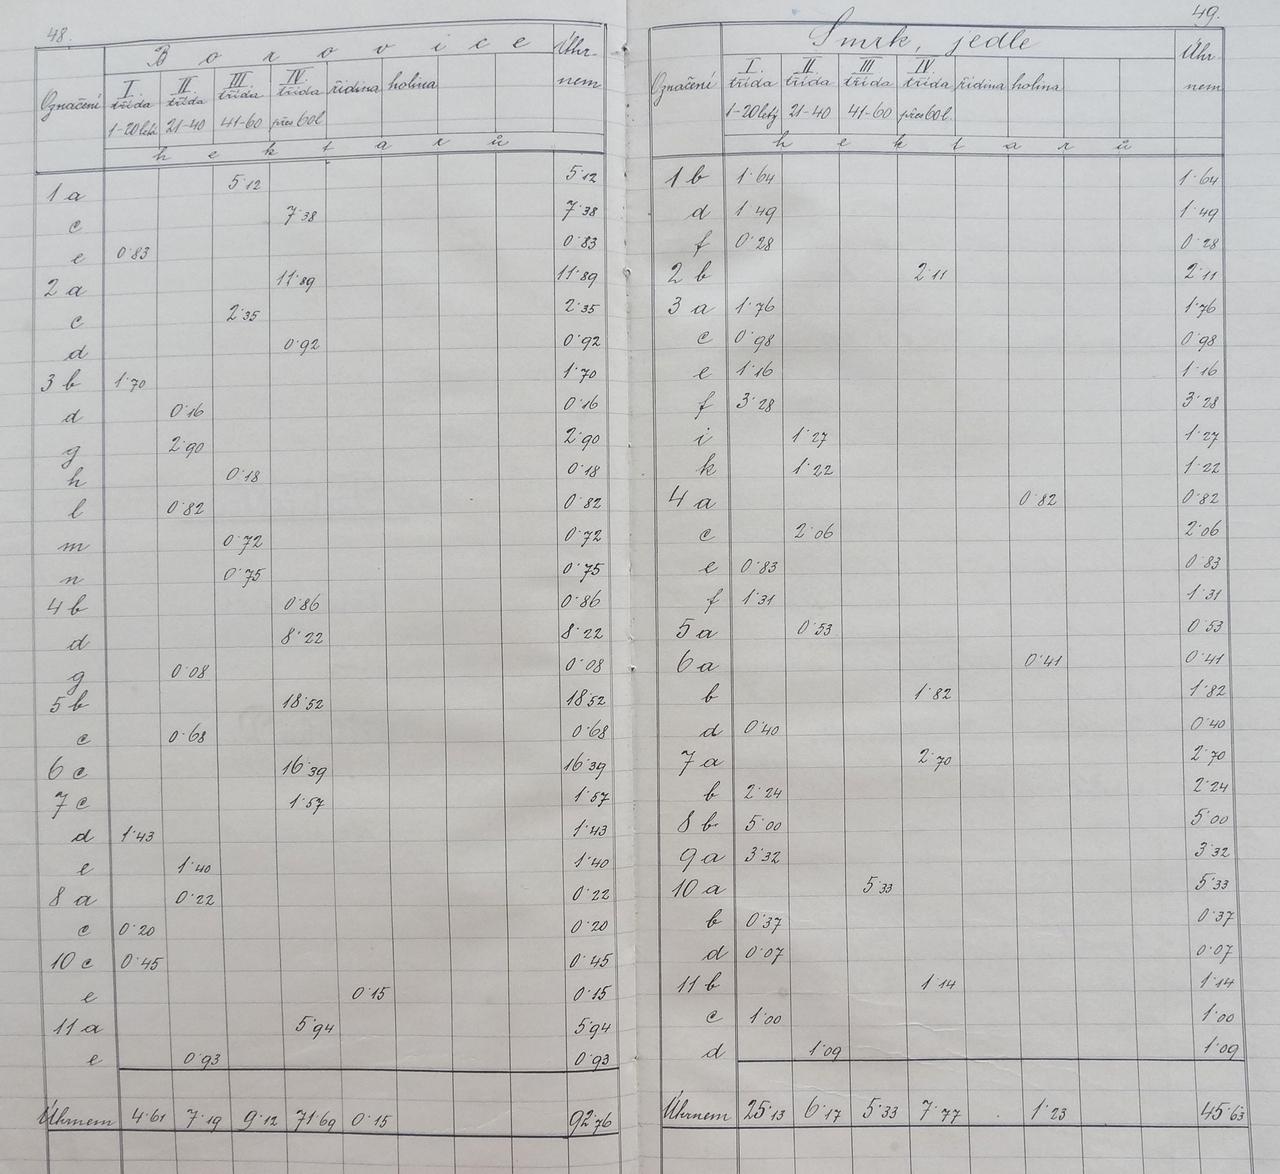 48.
Borovice Úhrnem
Označení I. třída 1-20 letá II. třída 21-40 III. třída 41-60 IV. třída přes 60 l. ředina holina
hektarů
1 a 5·12 5·12
c 7·38 7·38
e 0·83 0·83
2 a 11·89 11·89
c 2·35 2·35
d 0·92 0·92
3 b 1·70 1·70
d 0·16 0·16
g 2·90 2·90
h 0·18 0·18
l 0·82 0·82
m 0·72 0·72
n 0·75 0·75
4 b 0·86 0·86
d 8·22 8·22
g 0·08 0·08
5 b 18·52 18·52
c 0·68 0·68
6 c 16·39 16·39
7 c 1·57 1·57
d 1·43 1·43
e 1·40 1·40
8 a 0·22 0·22
c 0·20 0·20
10 c 0·45 0·45
e 0·15 0·15
11 a 5·94 5·94
e 0·93 0·93
Úhrnem 4·61 7·19 9·12 71·69 0·15 92·76
49.
Smrk, jedle Úhrnem
Označení I. třída 1-20 letý II třída 21-40 III třída 41-60 IV třída přes 60 l. ředina holina
hektarů
1 b 1·64 1·64
d 1·49 1·49
f 0·28 0·28
2 b 2·11 2·11
3 a 1·76 1·76
c 0·98 0·98
e 1·16 1·16
f 3·28 3·28
i 1·27 1·27
k 1·22 1·22
4 a 0·82 0·82
c 2·06 2·06
e 0·83 0·83
f 1·31 1·31
5 a 0·53 0·53
6 a 0·41 0·41
b 1·82 1·82
d 0·40 0·40
7 a 2·70 2·70
b 2·24 2·24
8 b 5·00 5·00
9 a 3·32 3·32
10 a 5·33 5·33
b 0·37 0·37
d 0·07 0·07
11 b 1·14 1·14
c 1·00 1·00
d 1·09 1·09
Úhrnem 25·13 6·17 5·33 7·77 · 1·23 45·63